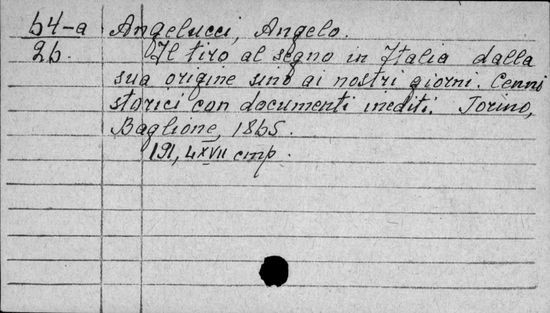 64-a Angelucci, Angelo.
26. Il tiro al segno in Italia dalla
sua origine sino ai nostri giorni. Cenni
storici con documenti inediti. Torino,
Baglione, 1865.
191, 4 XVII стр.